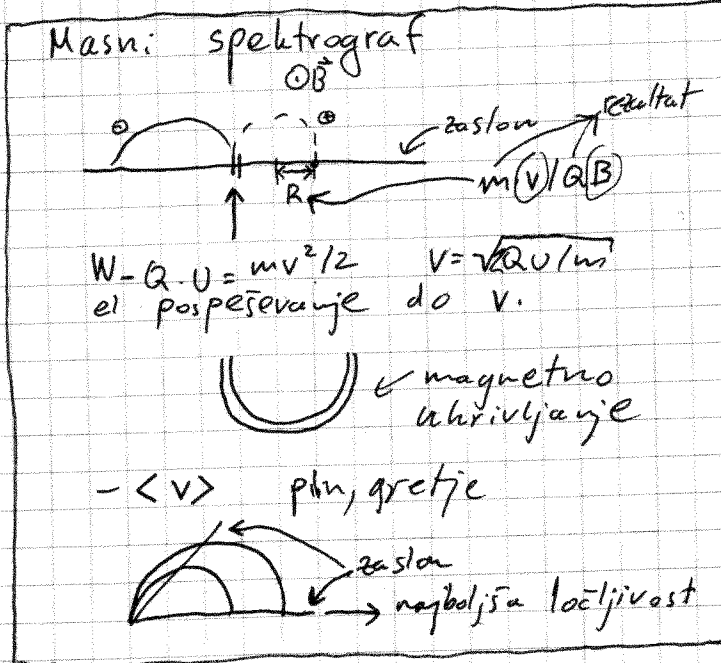 Masni spektrograf
⊙B⃗
⊖ ⊕
zaslon
rezultat
R
m(v)/Q(B)
W=Q·U=mv²/2 v=√2QU/m
el pospeševanje do v.
magnetno
ukrivljanje
- <v> plin, gretje
zaslon
najboljša ločljivost